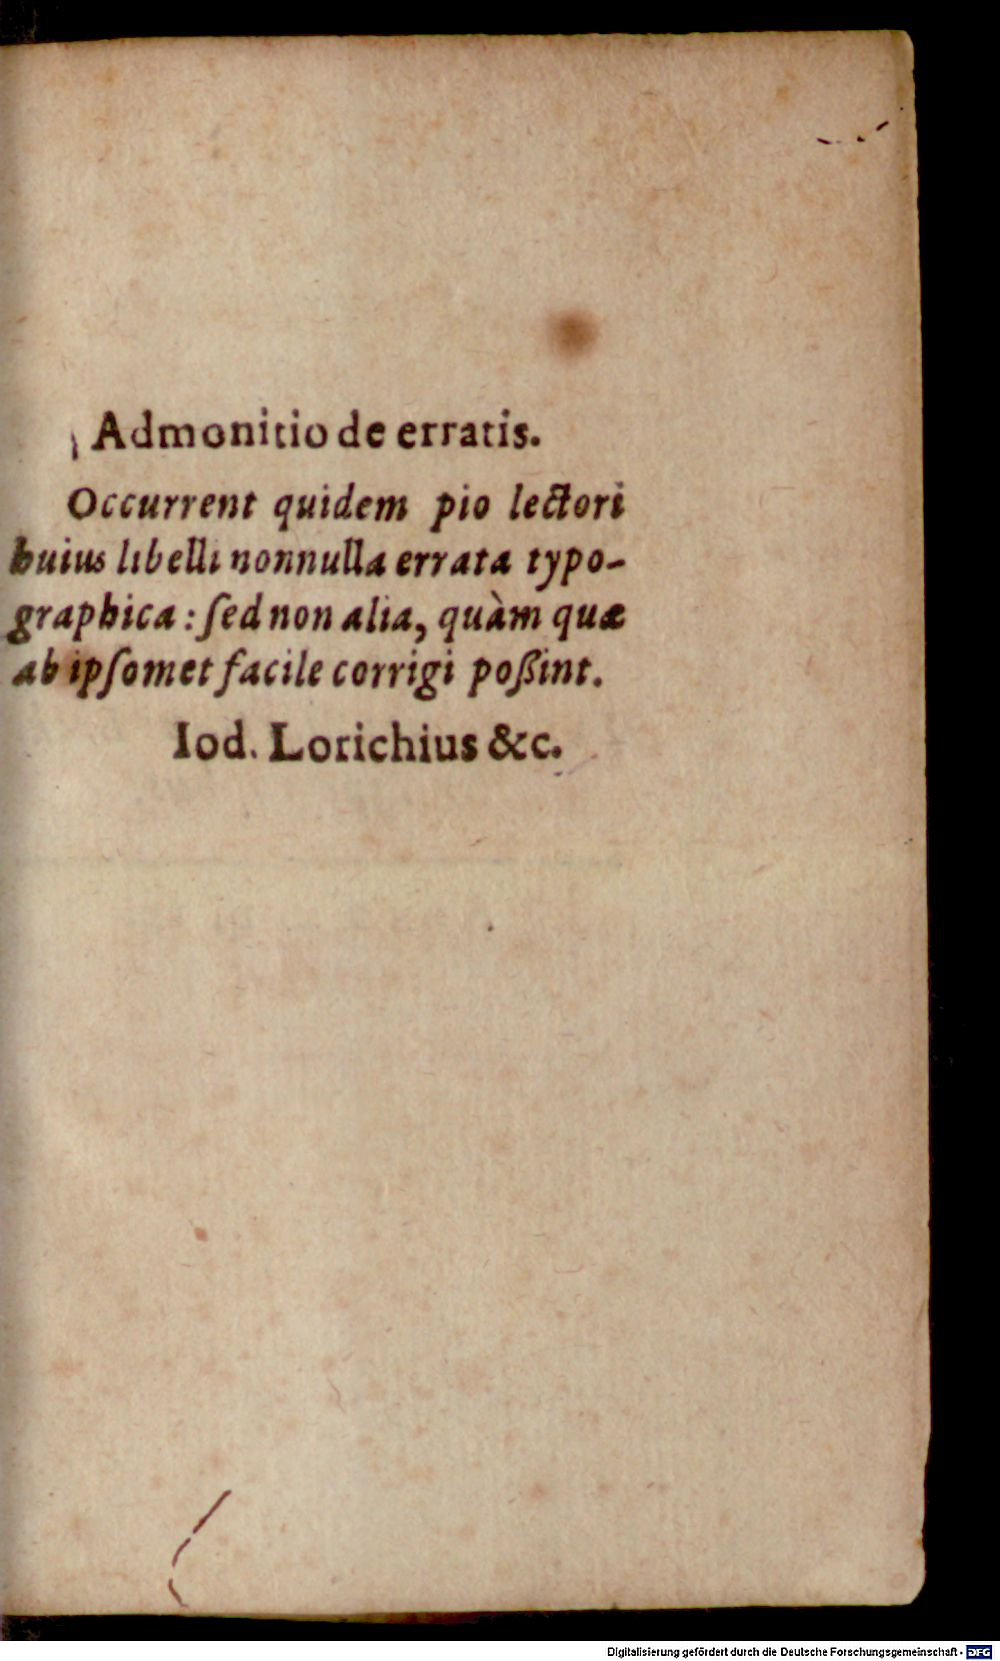 Admonitio de erratis.
Occurrent quidem pio lectori
huius libelli nonnulla errata typo-
graphica : ſed non alia, quàm quæ
ab ipſomet facile corrigi poßint.
Iod. Lorichius &c.
Digitalisierung gefördert durch die Deutsche Forschungsgemeinschaft - DFG